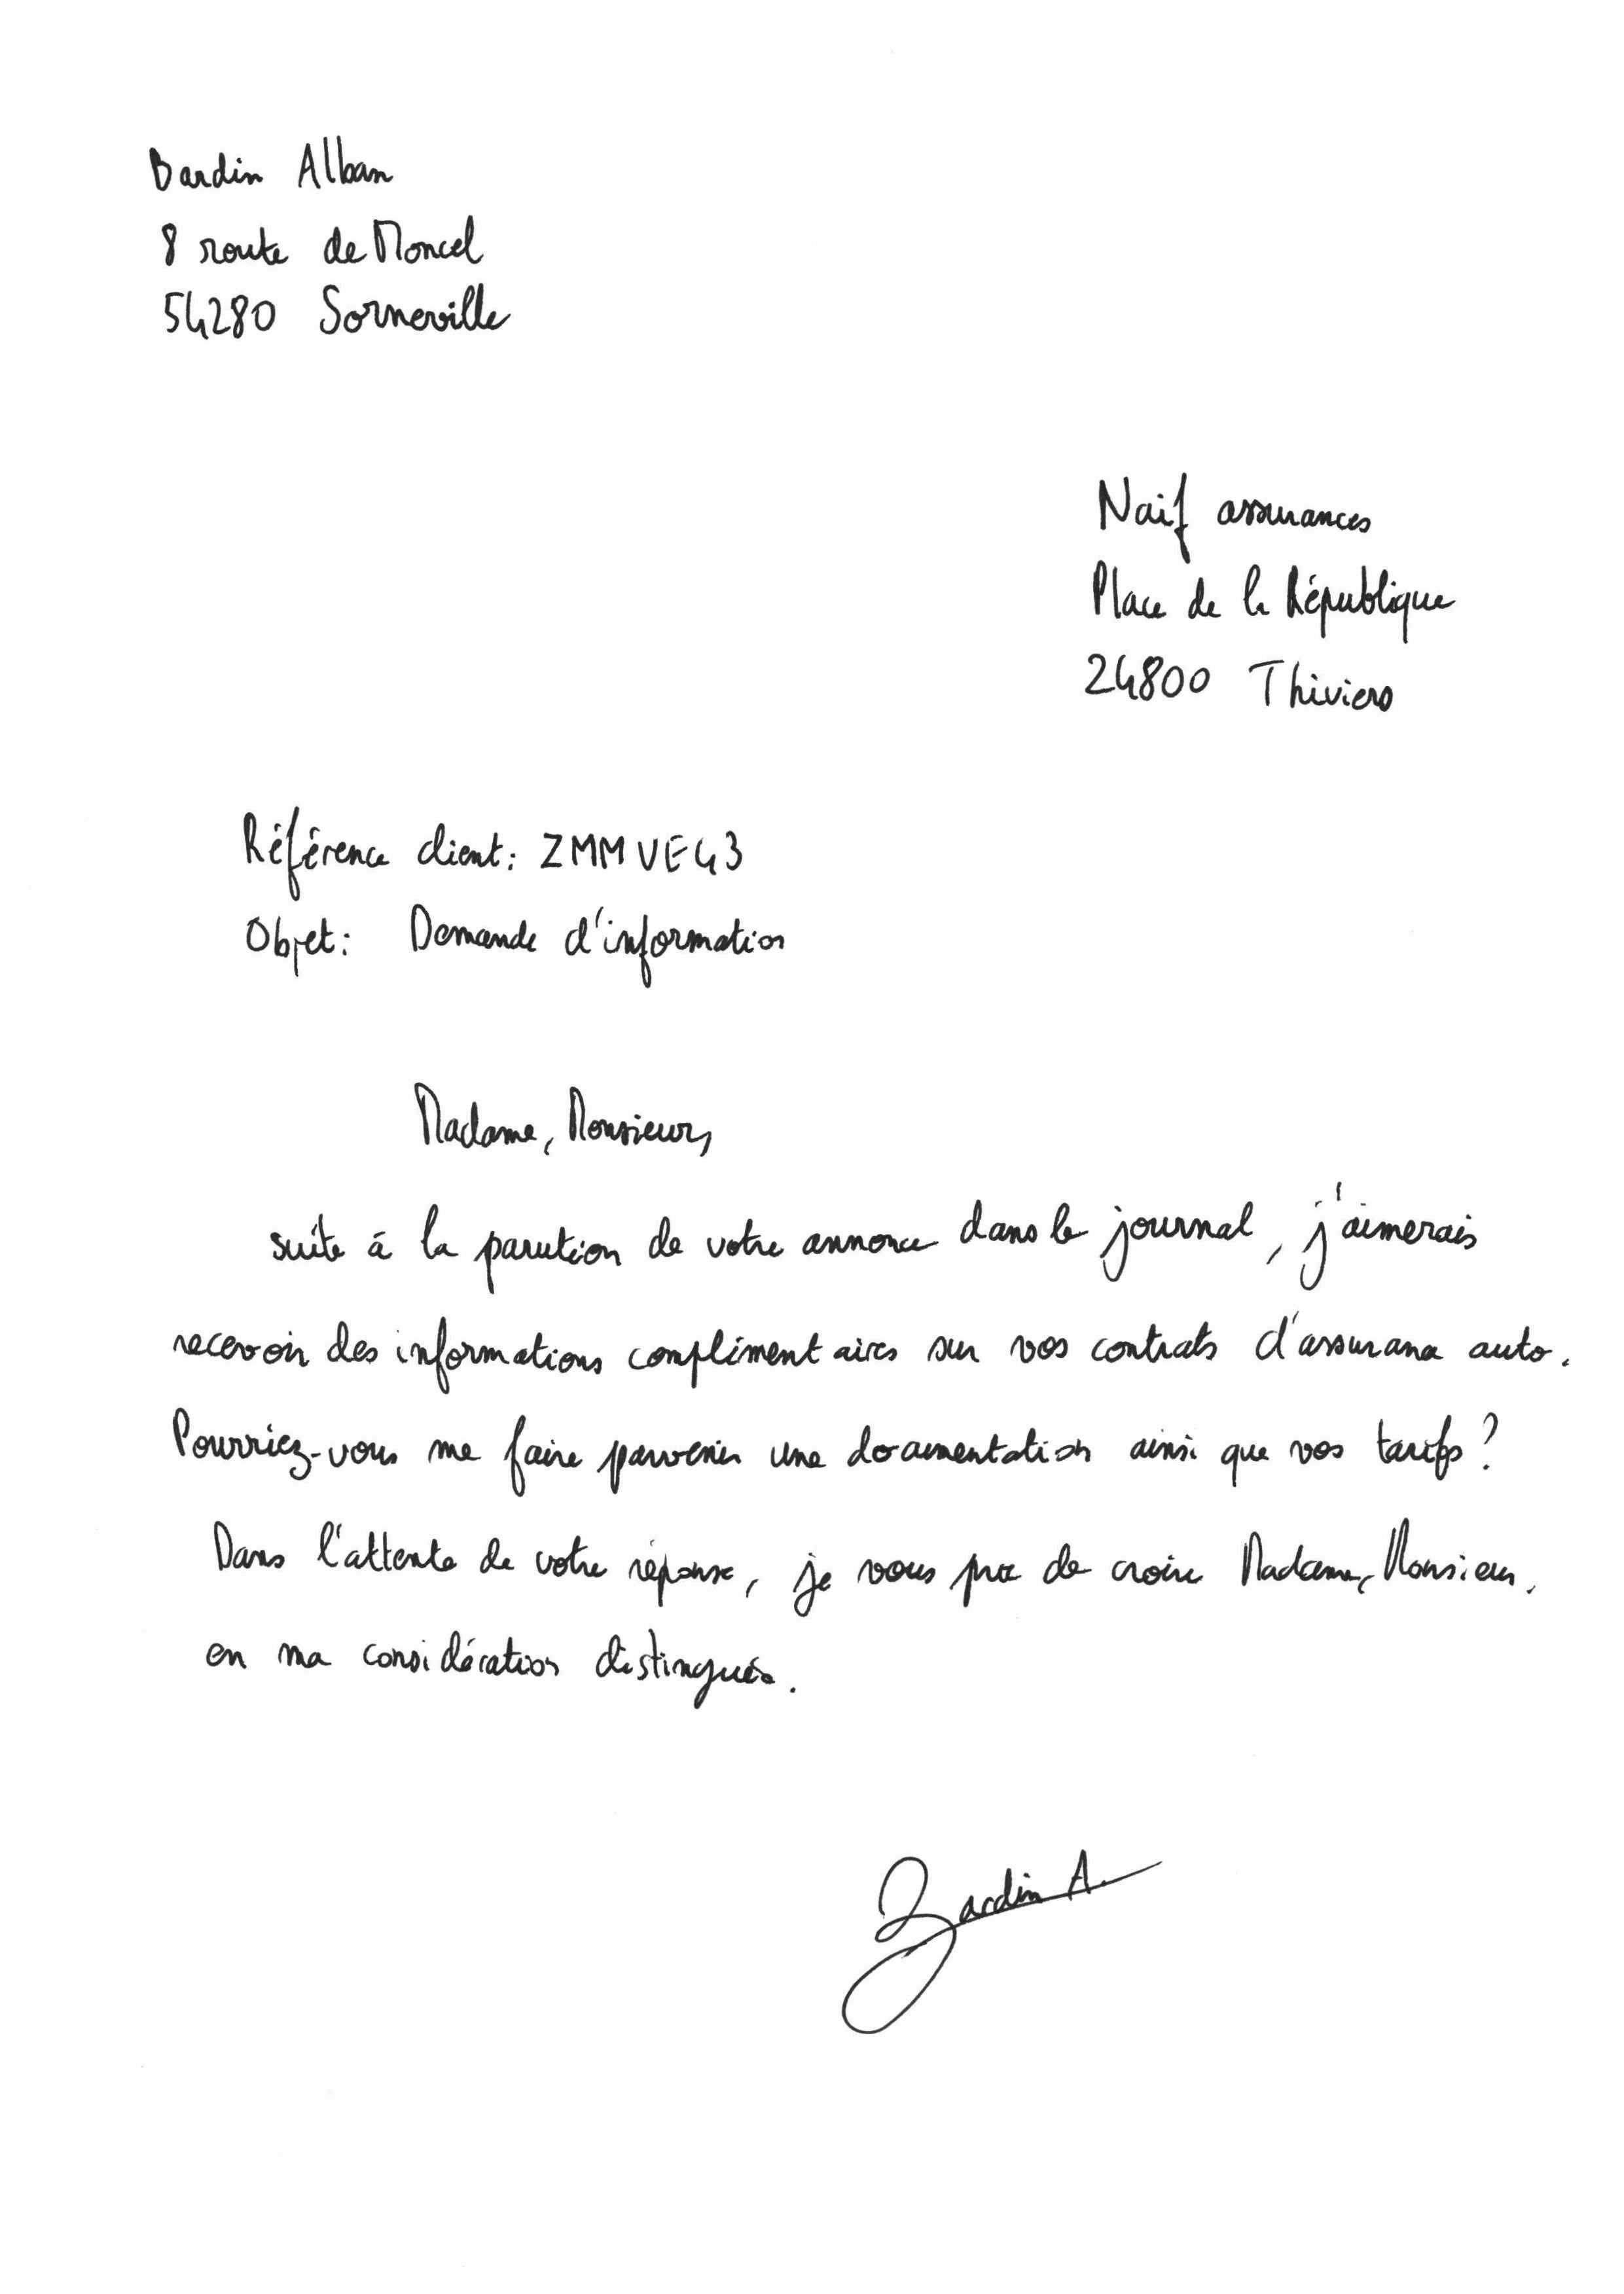 Bardin Alban
8 route de Moncel
54280 Sorneville
Naif assurances
Place de la République
24800 Thiviers
Référence client: ZMMVE43
Objet: Demande d'information
Madame, Monsieur,
suite à la parution de votre annonce dans le journal, j'aimerais
recevoir des informations complimentaires sur vos contrats d'assurance auto.
Pourriez-vous me faire parvenir une documentation ainsi que vos tarifs?
Dans l'attente de votre réponse, je vous prie de croire Madame, Monsieur,
en ma considération distinguée.
Bardin A.